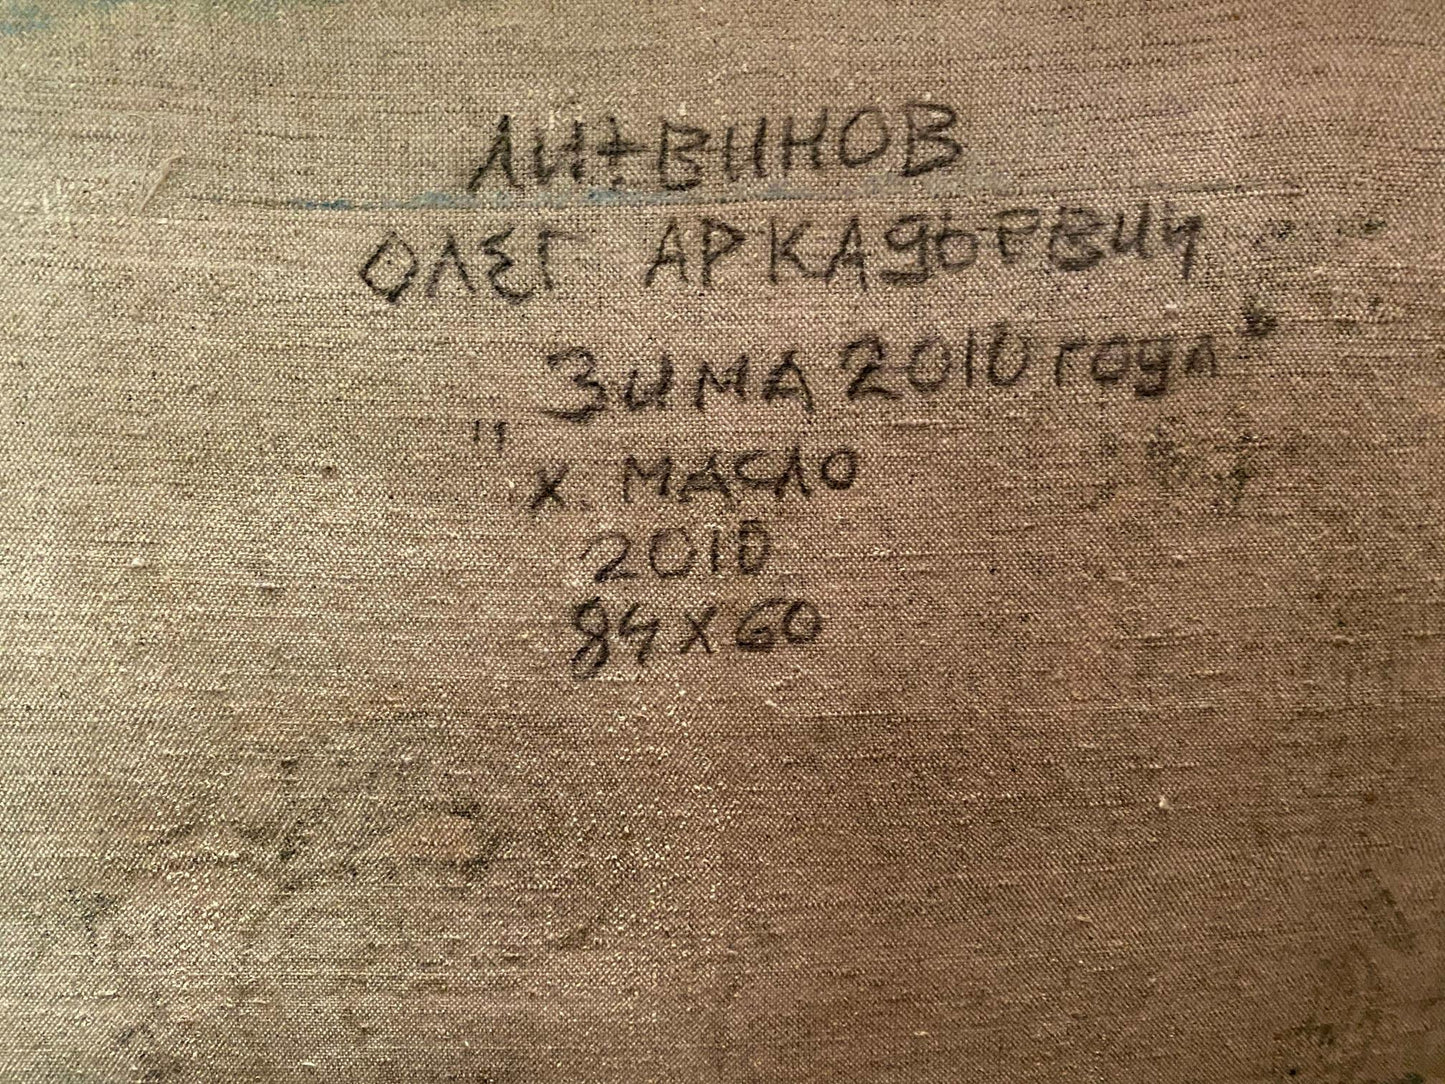 ЛИТВИНОВ
ОЛЕГ АРКАДЬЕВИЧ
„ЗИМА 2010 года“
х. МАСЛО
2010
84х60